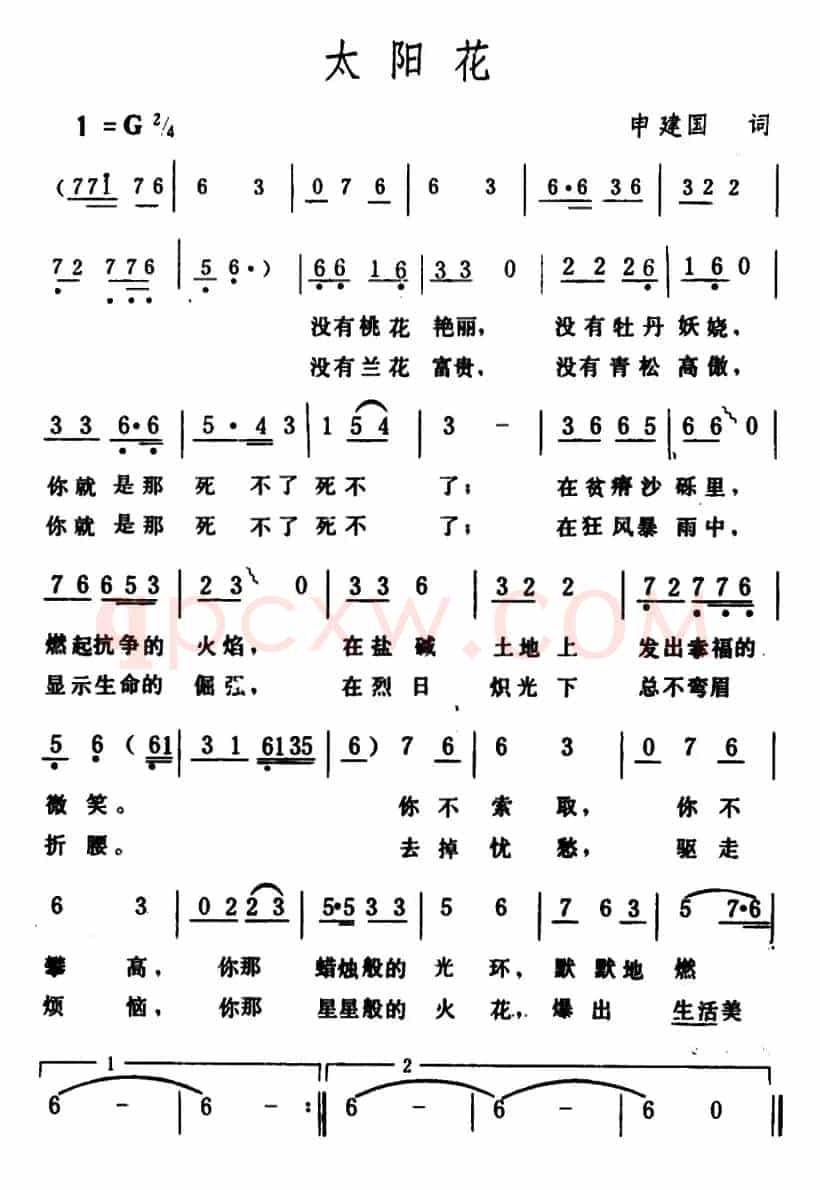 太阳花
1=G 2/4 申建国 词
(771 76 | 6 3 | 0 7 6 | 6 3 | 6·6 36 | 32 2 |
72 776 | 5 6·) | 66 16 | 33 0 | 22 26 | 16 0 |
没有桃花 艳丽， 没有牡丹 妖娆，
没有兰花 富贵， 没有青松 高傲，
33 6·6 | 5·43 | 1 54 | 3 - | 36 65 | 66 0 |
你就是那 死 不了 死不 了； 在贫瘠沙 砾里，
你就是那 死 不了 死不 了； 在狂风暴 雨中，
76 653 | 23 0 | 33 6 | 32 2 | 72 776 |
燃起抗争的 火焰， 在盐碱 土地上 发出幸福的
显示生命的 倔强， 在烈日 炽光下 总不弯眉
5 6 (61 | 31 6135 | 6) 7 6 | 6 3 | 0 7 6 |
微笑。 你不索取， 你不
折腰。 去掉忧愁， 驱走
6 3 | 02 23 | 5·5 33 | 5 6 | 7 63 | 5 7·6 |
攀高， 你那 蜡烛般的 光环， 默默地 燃
烦恼， 你那 星星般的 火花， 爆出 生活美
1 2
6 - | 6 - :‖ 6 - | 6 - | 6 0 ‖
qpcxw.com